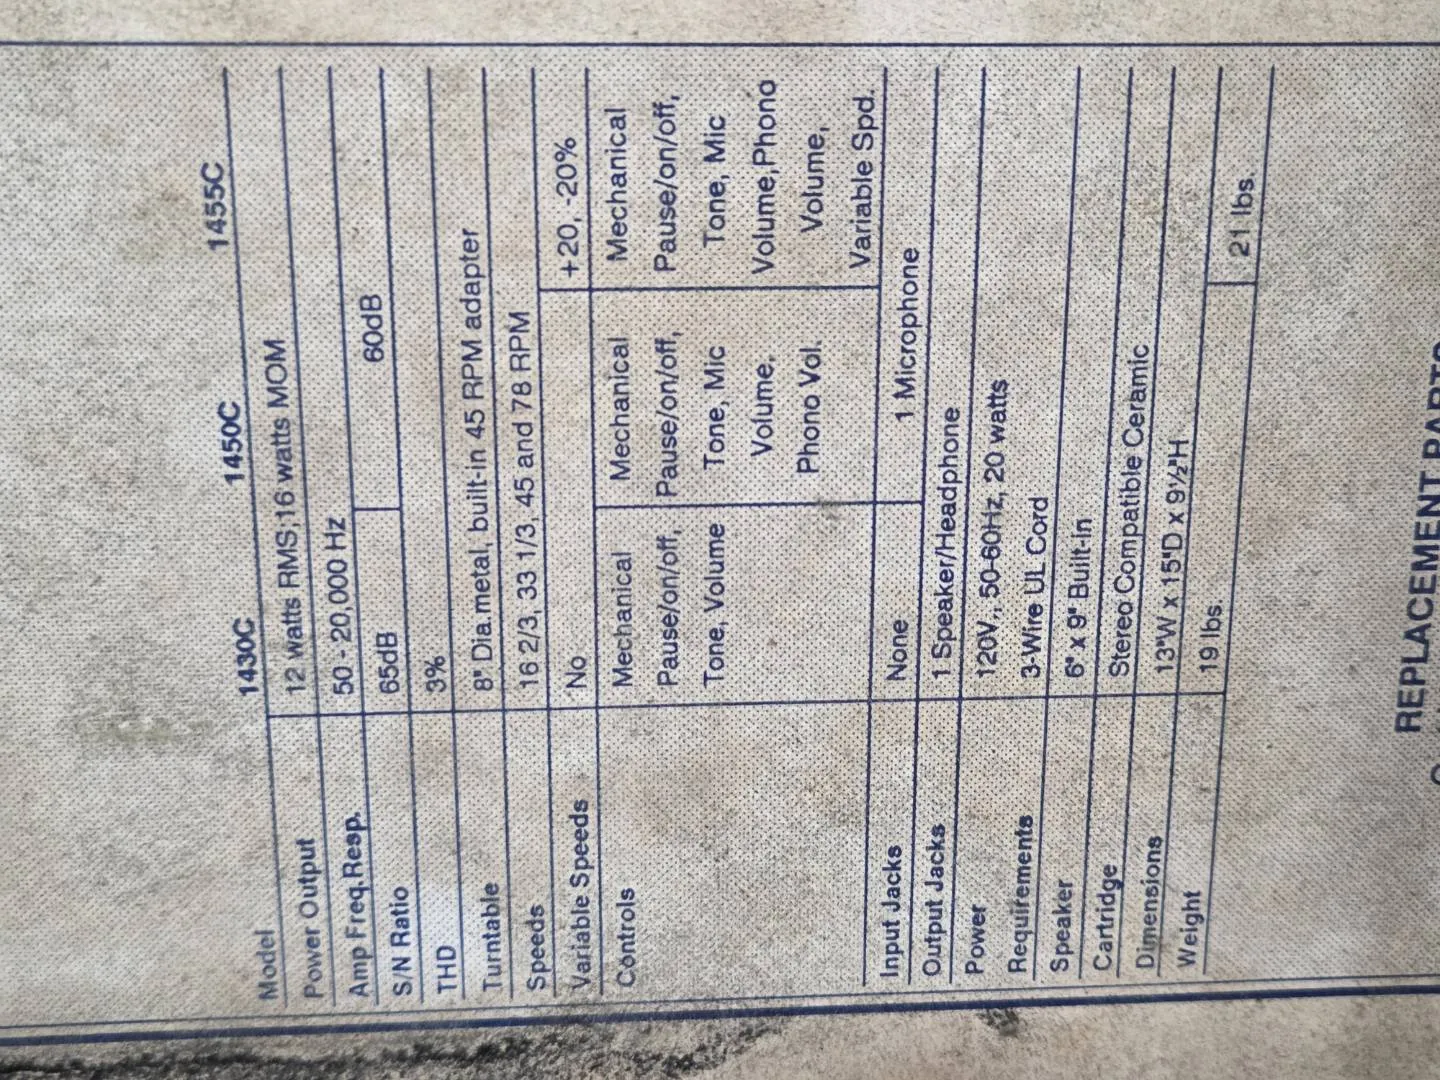 1430C 1450C 1455C
Model
Power Output 12 watts RMS;16 watts MOM
Amp Freq.Resp. 50 - 20,000 Hz
S/N Ratio 65dB 60dB
THD 3%
Turntable 8" Dia.metal, built-in 45 RPM adapter
Speeds 16 2/3, 33 1/3, 45 and 78 RPM
Variable Speeds No +20, -20%
Controls Mechanical Mechanical Mechanical
Pause/on/off, Pause/on/off, Pause/on/off,
Tone, Volume Tone, Mic Tone, Mic
Volume. Volume,Phono
Phono Vol. Volume,
Variable Spd.
Input Jacks None 1 Microphone
Output Jacks 1 Speaker/Headphone
Power 120V., 50-60Hz, 20 watts
Requirements 3-Wire UL Cord
Speaker 6" x 9" Built-in
Cartridge Stereo Compatible Ceramic
Dimensions 13"W x 15"D x 9½"H
Weight 19 lbs. 21 lbs.
REPLACEMENT PARTS